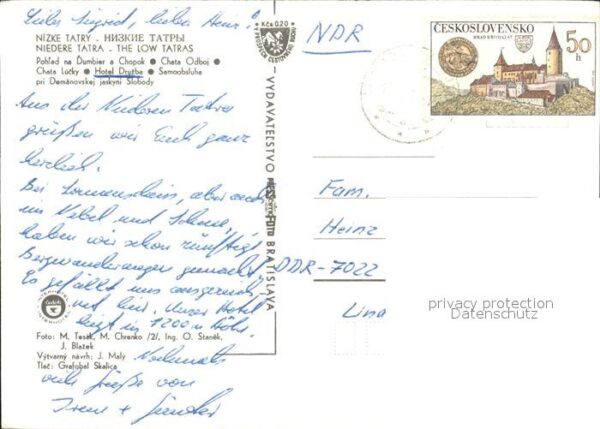 Liebe Sigrid, lieber Heinz!
NÍZKE TATRY - НИЗКИЕ ТАТРЫ
NIEDERE TATRA - THE LOW TATRAS
Pohľad na Ďumbier a Chopok • Chata Odboj •
Chata Lúčky • Hotel Družba • Samoobsluha
pri Demänovskej jaskyni Slobody
Kčs 0,20
Aus der Niederen Tatra
grüßen wir Euch ganz
herzlich.
Bei Sonnenschein, aber auch
im Nebel und Schnee,
haben wir schon zünftige
Bergwanderungen gemacht.
Es gefällt uns ausgezeich-
net hier. Unser Hotel
liegt in 1200 m Höhe.
Nochmals
viele Grüße von
Irene +
Foto: M. Tesák, M. Chrenko /2/, Ing. O. Staněk,
J. Blažek
Výtvarný návrh: J. Malý
Tlač: Grafobal Skalica
VYDAVATEĽSTVO
BRATISLAVA
NDR
ČESKOSLOVENSKO
HRAD KŘIVOKLÁT
50 h
Fam.
Heinz
DDR-7022
Lina
privacy protection
Datenschutz